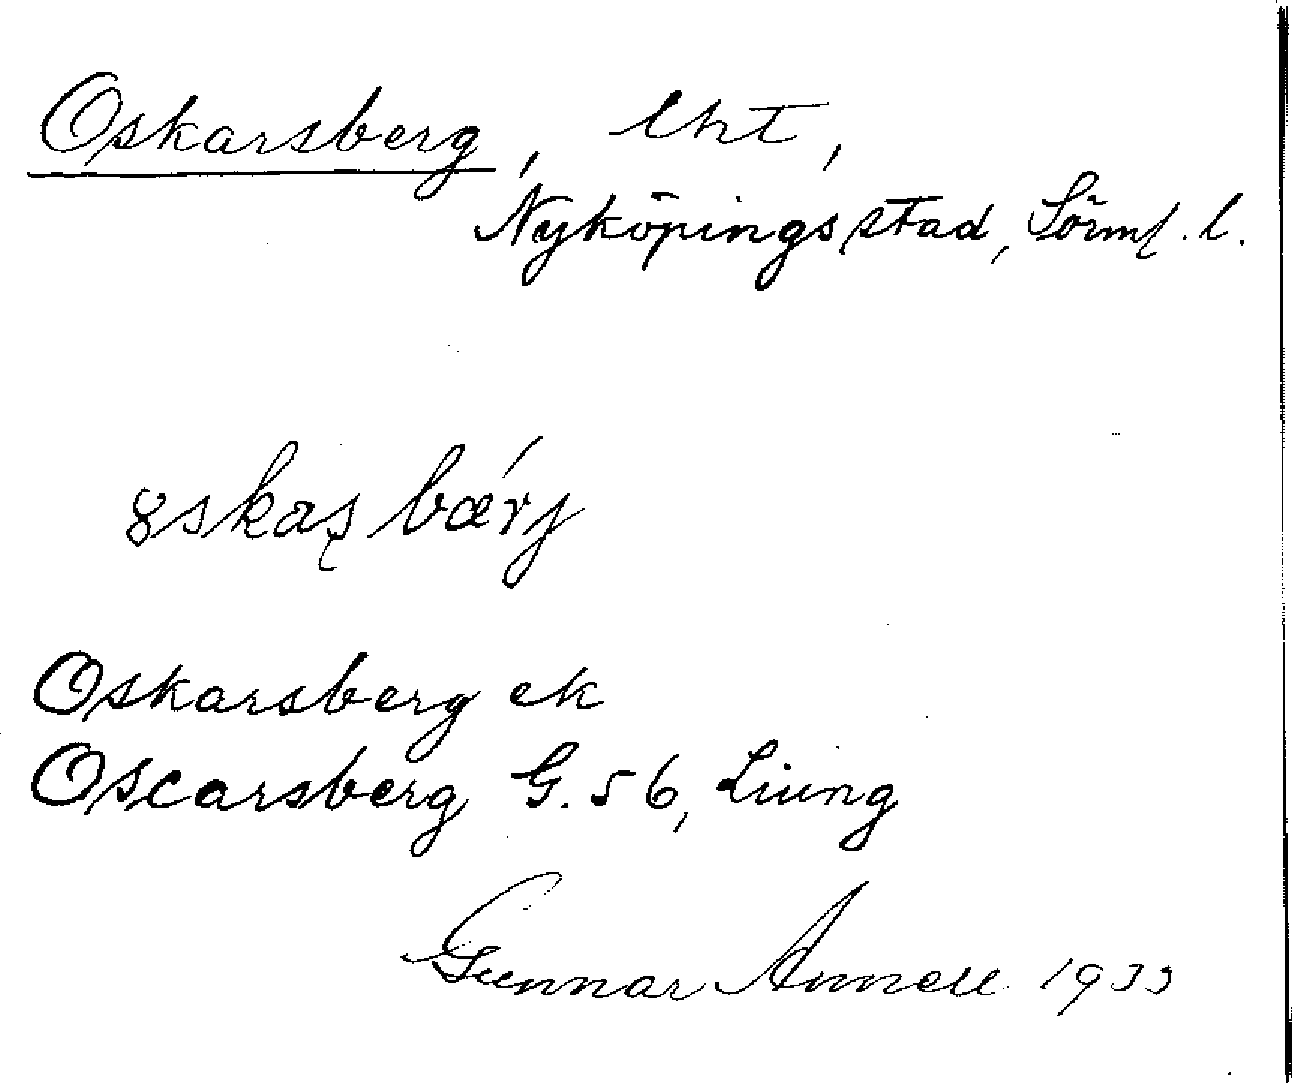 Oskarsberg, lht,
Nyköpings stad, Sörml. l.
ȣskaʂbǽrj
Oskarsberg ek
Oscarsberg G. 56, Liung
Gunnar Annell 1933